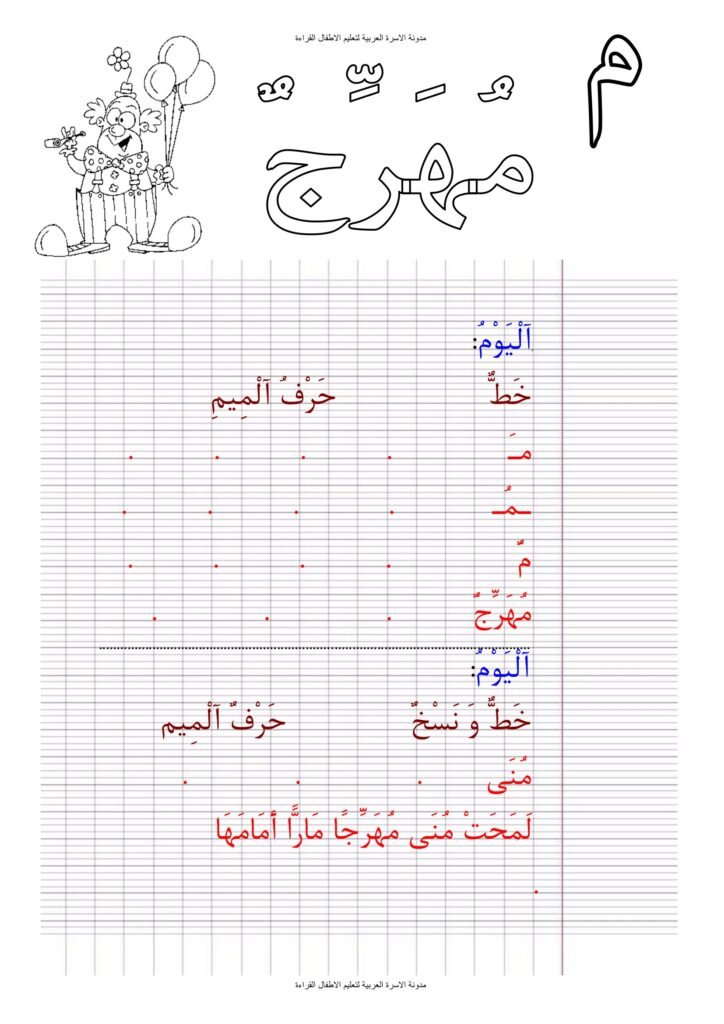 مدونة الاسرة العربية لتعليم الاطفال القراءة
م
مُهَرِّجٌ
اَلْيَوْمُ:
خَطٌّ حَرْفُ اَلْمِيمِ
مـَ . . . .
ـمُـ . . . .
مٌ . . . .
مُهَرِّجٌ . . .
اَلْيَوْمُ:
خَطٌّ وَ نَسْخٌ حَرْفٌ اَلْمِيم
مُنَى . . .
لَمَحَتْ مُنَى مُهَرِّجًا مَارًّا أمَامَهَا
.
مدونة الاسرة العربية لتعليم الاطفال القراءة